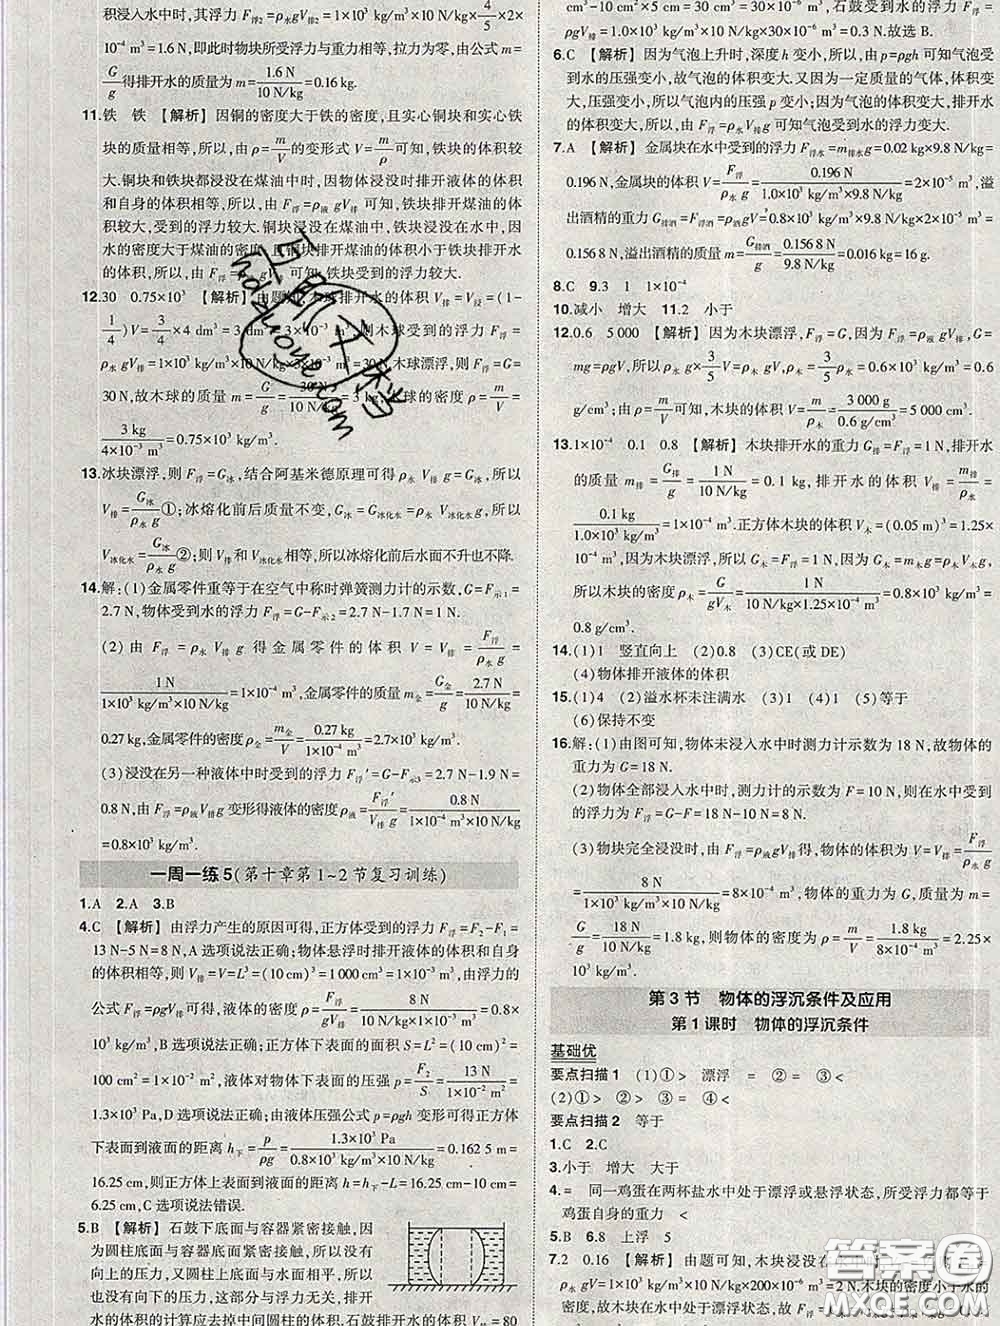 积浸入水中时,其浮力 F浮2=ρ水 gV排2=1×10³ kg/m³×10 N/kg×4/5×2×
10⁻⁴ m³=1.6 N,即此时物块所受浮力与重力相等,拉力为零.由公式 m=
G/g得排开水的质量为 m=1.6 N/10 N/kg=0.16 kg.
11.铁 铁 【解析】因铜的密度大于铁的密度,且实心铜块和实心铁
块的质量相等,所以,由 ρ=m/V的变形式 V=m/ρ可知,铁块的体积较
大.铜块和铁块都浸没在煤油中时,因物体浸没时排开液体的体积
和自身的体积相等,所以,由 F浮=ρ液 gV排可知,铁块排开煤油的
体积较大,受到的浮力较大.铜块浸没在煤油中,铁块浸没在水中,因
水的密度大于煤油的密度,且铜块排开煤油的体积小于铁块排开水
的体积,所以,由 F浮=ρ液 gV排可知,铁块受到的浮力较大.
12.30 0.75×10³ 【解析】由题知,木球排开水的体积 V排=V浸=(1-
1/4)V=3/4×4 dm³=3 dm³=3×10⁻³ m³,则木球受到的浮力 F浮=
ρ水 gV排=1×10³ kg/m³×10 N/kg×3×10⁻³ m³=30 N,木球漂浮,则 F浮=G=
30 N,故木球的质量 m=G/g=30 N/10 N/kg=3 kg,木球的密度 ρ木=m/V=
3 kg/4×10⁻³ m³=0.75×10³ kg/m³.
13.冰块漂浮,则 F浮=G冰,结合阿基米德原理可得 ρ水 V排g=G冰,所以
V排=G冰/ρ水g①;冰熔化前后质量不变,G冰=G冰化水=ρ水 V冰化水g,所以
V冰化水=G冰/ρ水g②;则 V排=V冰化水,所以冰熔化前后水面不升也不降.
14.解:(1)金属零件重等于在空气中称时弹簧测力计的示数,G=F示1=
2.7 N,物体受到水的浮力 F浮=G-F示2=2.7 N-1.7 N=1 N.
(2)由 F浮=ρ水 V排 g 得金属零件的体积 V=V排=F浮/ρ水 g=
1 N/1×10³ kg/m³×10 N/kg=1×10⁻⁴ m³,金属零件的质量 m金=G金/g=2.7 N/10 N/kg=
0.27 kg,金属零件的密度 ρ金=m金/V=0.27 kg/1×10⁻⁴ m³=2.7×10³ kg/m³.
(3)浸没在另一种液体中时受到的浮力 F浮′=G-F示3=2.7 N-1.9 N=
0.8 N,由 F浮=ρ液 V排g 变形得液体的密度 ρ液=F浮′/V排 g=0.8 N/1×10⁻⁴ m³×10 N/kg
=0.8×10³ kg/m³.
一周一练5(第十章第1~2节复习训练)
1.A 2.A 3.B
4.C 【解析】由浮力产生的原因可得,正方体受到的浮力 F浮=F2-F1=
13 N-5 N=8 N,A 选项说法正确;物体悬浮时排开液体的体积和自身
的体积相等,则 V排=V=L³=(10 cm)³=1 000 cm³=1×10⁻³ m³,由浮力的
公式 F浮=ρ液gV排可得,液体的密度 ρ=F浮/gV排=8 N/10 N/kg×1×10⁻³ m³=0.8×
10³ kg/m³,B 选项说法正确;正方体下表面的面积 S=L²=(10 cm)²=
100 cm²=1×10⁻² m²,液体对物体下表面的压强 p=F2/S=13 N/1×10⁻² m²=
1.3×10³ Pa,D 选项说法正确;由液体压强公式 p=ρgh 变形可得正方体
下表面到液面的距离 h下=p/ρg=1.3×10³ Pa/0.8×10³ kg/m³×10 N/kg=0.162 5 m=
16.25 cm,则正方体上表面到液面的距离 h=h下-L=16.25 cm-10 cm=
6.25 cm,C 选项说法错误.
5.B 【解析】石鼓下底面与容器紧密接触,因
为圆柱底面与容器底面紧密接触,所以没有
向上的压力,又因圆柱上底面与水面相平,所以
没有向下的压力,这部分与浮力无关,排开
水的体积的计算应去掉中间圆柱的体积 V排=80
cm³-10 cm²×5 cm=30 cm³=30×10⁻⁶ m³,石鼓受到水的浮力 F浮=
m³=0.3 N.故选 B.
6.C 【解析】因为气泡上升时,深度 h 变小,所以,由 p=ρgh 可知气泡受
到水的压强变小,故气泡的体积变大.又因为一定质量的气体,体积变
大,压强变小,所以气泡内的压强 p 变小;因为气泡的体积变大,排开水
的体积变大,所以由 F浮=ρ水 V排g 可知气泡受到水的浮力变大.
7.A 【解析】金属块在水中受到的浮力 F浮水=m排水g=0.02 kg×9.8 N/kg=
0.196 N,金属块的体积 V=F浮/ρ水g=0.196 N/1.0×10³ kg/m³×9.8 N/kg=2×10⁻⁵ m³,溢
出酒精的重力 G排酒=F浮酒=ρ酒gV=0.8×10³ kg/m³×9.8 N/kg×2×10⁻⁵ m³=
0.156 8 N,溢出酒精的质量 m=G排酒/g=0.156 8 N/9.8 N/kg=0.016 kg=16 g.
8.C 9.3 1 1×10⁻⁴
10.减小 增大 11.2 小于
12.0.6 5 000 【解析】因为木块漂浮,F浮=G,因为 F浮=ρ水 gV排,G=
mg=ρgV,所以 ρ水 g×3/5V=ρgV,所以 ρ=3/5ρ水=0.6×10³ kg/m³=
0.6 g/cm³;由 ρ=m/V可知,木块的体积 V=m/ρ=3 000 g/0.6 g/cm³=5 000 cm³.
13.1×10⁻⁴ 0.1 0.8 【解析】木块排开水的重力 G排=F浮=1 N,排开水
的质量 m排=G排/g=1 N/10 N/kg=0.1 kg,排开水的体积 V排=m排/ρ水=
0.1 kg/1.0×10³ kg/m³=1×10⁻⁴ m³.正方体木块的体积 V木=(0.05 m)³=1.25×
10⁻⁴ m³,因为木块漂浮,所以 G木=F浮=1 N,因为 G木=m木g=ρ木gV木,
所以木块的密度 ρ木=G/gV木=1 N/10 N/kg×1.25×10⁻⁴ m³=0.8×10³ kg/m³=
0.8 g/cm³.
14.(1)1 竖直向上 (2)0.8 (3)CE(或 DE)
(4)物体排开液体的体积
15.(1)4 (2)溢水杯未注满水 (3)1 (4)1 (5)等于
(6)保持不变
16.解:(1)由图可知,物体未浸入水中时测力计示数为 18 N,故物体的
重力为 G=18 N.
(2)物体全部浸入水中时,测力计的示数为 F=10 N,则在水中受到
的浮力为 F浮=G-F=18 N-10 N=8 N.
(3)物块完全浸没时,由 F浮=ρ液gV排可知,物体的体积为 V=V排=F浮/ρ水g=
8 N/1×10³ kg/m³×10 N/kg=8×10⁻⁴ m³,物体的重力为 G,质量为 m=
G/g=18 N/10 N/kg=1.8 kg,则物体的密度为 ρ=m/V=1.8 kg/8×10⁻⁴ m³=2.25×
10³ kg/m³.
第3节 物体的浮沉条件及应用
第1课时 物体的浮沉条件
基础优
要点扫描1 (1)①> 漂浮 = ②= ③<
(2)①> ②< ③= ④<
要点扫描2 等于
1.C 2.C
3.小于 增大 大于
4.= 同一鸡蛋在两杯盐水中处于漂浮或悬浮状态,所受浮力都等于
鸡蛋自身的重力 <
5.B 6.8 上浮 5
7.2 0.16 【解析】由题可知,木块浸没在
ρ水 gV=1×10³ kg/m³×10 N/kg×200×10⁻⁶ m³=2 N.木块的密度小于水的
密度,所以木块最终处于漂浮状态,故
答案圈
MXQE.COM